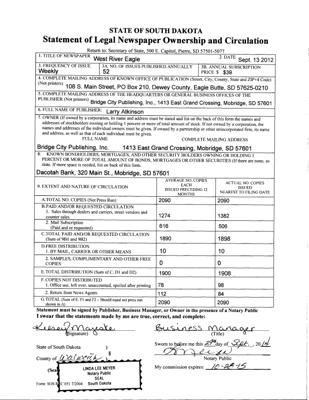 STATE OF SOUTH DAKOTA
Statement of Legal Newspaper Ownership and Circulation
Return to: Secretary of State, 500 E. Capitol, Pierre, SD 57501-5077
1. TITLE OF NEWSPAPER West River Eagle 2. DATE Sept. 13 2012
3. FREQUENCY OF ISSUE 3A. NO. OF ISSUES PUBLISHED ANNUALLY 3B. ANNUAL SUBSCRIPTION
Weekly 52 PRICE $ $39
4. COMPLETE MAILING ADDRESS OF KNOWN OFFICE OF PUBLICATION (Street, City, County, State and ZIP+4 Code)
(Not printers)
108 S. Main Street, PO Box 210, Dewey County, Eagle Butte, SD 57625-0210
5. COMPLETE MAILING ADDRESS OF THE HEADQUARTERS OF GENERAL BUSINESS OFFICES OF THE
PUBLISHER (Not printers) Bridge City Publishing, Inc., 1413 East Grand Crossing, Mobridge, SD 57601
6. FULL NAME OF PUBLISHER: Larry Atkinson
7. OWNER (If owned by a corporation, its name and address must be stated and on the back of this form the names and
addresses of stockholders owning or holding 1 percent or more of total amount of stock. If not owned by a corporation, the
names and addresses of the individual owners must be given. If owned by a partnership or other unincorporated firm, its name
and address, as well as that of each individual must be given.
FULL NAME COMPLETE MAILING ADDRESS
Bridge City Publishing, Inc. 1413 East Grand Crossing, Mobridge, SD 57601
8. KNOWN BONDHOLDERS, MORTGAGES, AND OTHER SECURITY HOLDERS OWNING OR HOLDING 1
PERCENT OR MORE OF TOTAL AMOUNT OF BONDS, MORTGAGES OR OTHER SECURITIES (If there are none, so
state. If more space is needed, list on back of this form.
Dacotah Bank, 320 Main St., Mobridge, SD 57601
9. EXTENT AND NATURE OF CIRCULATION
AVERAGE NO. COPIES
EACH
ISSUED PRECEDING 12
MONTHS
ACTUAL NO. COPIES
ISSUED
NEAREST TO FILING DATE
A. TOTAL NO. COPIES (Net Press Run) 2090 2090
B. PAID AND/OR REQUESTED CIRCULATION
1. Sales through dealers and carriers, street vendors and
counter sales. 1274 1382
2. Mail Subscription
(Paid and or requested) 616 506
C. TOTAL PAID AND/OR REQUESTED CIRCULATION
(Sum of 9B1 and 9B2) 1890 1898
D. FREE DISTRIBUTION
1. BY MAIL, CARRIER OR OTHER MEANS 10 10
2. SAMPLES, COMPLIMENTARY AND OTHER FREE
COPIES 0 0
E. TOTAL DISTRIBUTION (Sum of C, D1 and D2) 1900 1908
F. COPIES NOT DISTRIBUTED
1. Office use, left over, unaccounted, spoiled after printing 78 98
2. Return from News Agents 112 84
G. TOTAL (Sum of E, F1 and F2 – Should equal net press run
shown in A) 2090 2090
Statement must be signed by Publisher, Business Manager, or Owner in the presence of a Notary Public
I swear that the statements made by me are true, correct, and complete:
Business Manager
(Signature) (Title)
State of South Dakota )
Sworn to before me this day of Sept.
County of Walworth )
Notary Public
(Seal)
LINDA LEE MEYER
Notary Public
SEAL
South Dakota
My commission expires: